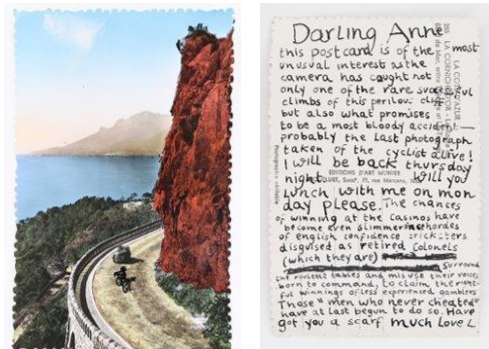 Darling Anne
this postcard is of the most
unusual interest as the
camera has caught not
only one of the rare successful
climbs of this perilous cliff
but also what promises
to be a most bloody accident —
probably the last photograph
taken of the cyclist alive!
I will be back thursday
night. Will you
EDITIONS D'ART MUNIER
lunch with me on mon
day please. The chances
of winning at the casinos have
become even slimmer as hordes
of english confidence tricksters
disguised as retired Colonels
(which they are)
surround
the roulette tables and misuse their voices,
born to command, to claim the right-
ful winnings of less experienced gamblers
Those "men who never cheated"
have at last begun to do so. Have
got you a scarf much love L
LA CÔTE D'AZUR
LA CORNICHE D'OR